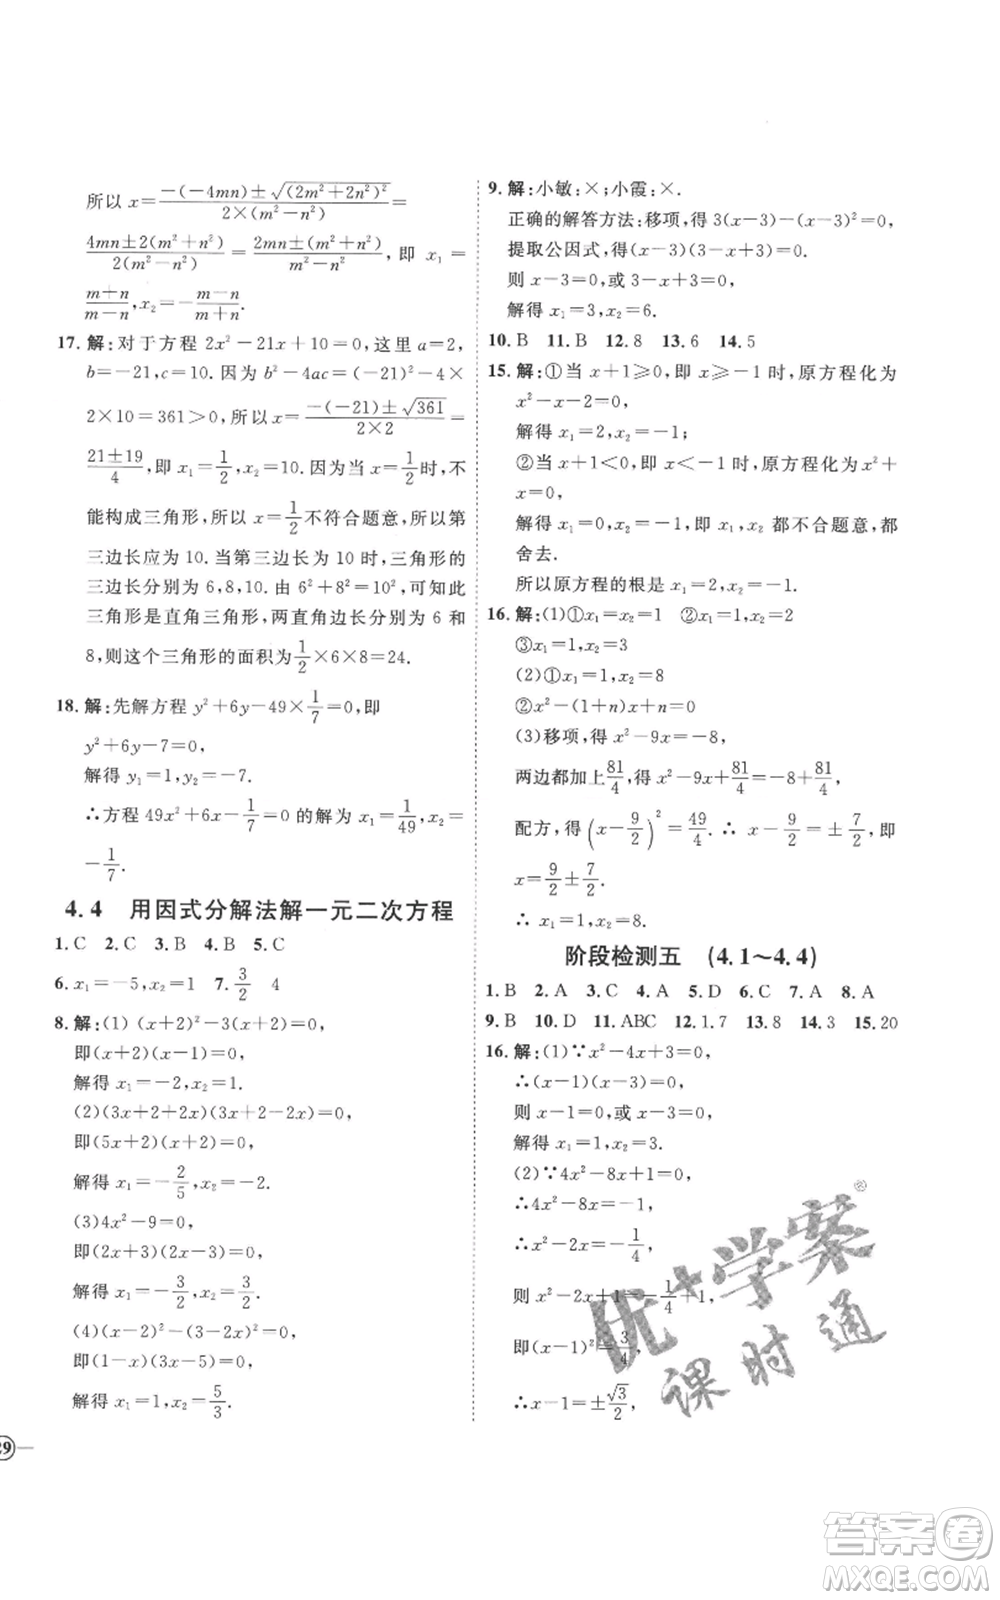 所以 x=\frac{-(-4mn)±\sqrt{(2m²+2n²)²}}{2×(m²-n²)}=
\frac{4mn±2(m²+n²)}{2(m²-n²)}=\frac{2mn±(m²+n²)}{m²-n²},即 x₁=
\frac{m+n}{m-n},x₂=-\frac{m-n}{m+n}.
17.解:对于方程 2x²-21x+10=0,这里 a=2,
b=-21,c=10.因为 b²-4ac=(-21)²-4×
2×10=361>0,所以 x=\frac{-(-21)±\sqrt{361}}{2×2}=
\frac{21±19}{4},即 x₁=\frac{1}{2},x₂=10.因为当 x=\frac{1}{2}时,不
能构成三角形,所以 x=\frac{1}{2}不符合题意,所以第
三边长应为 10.当第三边长为 10 时,三角形的
三边长分别为 6,8,10.由 6²+8²=10²,可知此
三角形是直角三角形,两直角边长分别为 6 和
8,则这个三角形的面积为\frac{1}{2}×6×8=24.
18.解:先解方程 y²+6y-49×\frac{1}{7}=0,即
y²+6y-7=0,
解得 y₁=1,y₂=-7.
∴方程 49x²+6x-\frac{1}{7}=0 的解为 x₁=\frac{1}{49},x₂=
-\frac{1}{7}.
4.4 用因式分解法解一元二次方程
1.C 2.C 3.B 4.B 5.C
6.x₁=-5,x₂=1 7.\frac{3}{2} 4
8.解:(1)(x+2)²-3(x+2)=0,
即(x+2)(x-1)=0,
解得 x₁=-2,x₂=1.
(2)(3x+2+2x)(3x+2-2x)=0,
即(5x+2)(x+2)=0,
解得 x₁=-\frac{2}{5},x₂=-2.
(3)4x²-9=0,
即(2x+3)(2x-3)=0,
解得 x₁=-\frac{3}{2},x₂=\frac{3}{2}.
(4)(x-1)²+(2-2x)(2x-2)... 
即(1-x)(3x-5)=0,
解得 x₁=1,x₂=\frac{5}{3}.
29
9.解:小敏:×;小霞:×.
正确的解答方法:移项,得 3(x-3)-(x-3)²=0,
提取公因式,得(x-3)(3-x+3)=0.
则 x-3=0,或 3-x+3=0,
解得 x₁=3,x₂=6.
10.B 11.B 12.8 13.6 14.5
15.解:①当 x+1≥0,即 x≥-1 时,原方程化为
x²-x-2=0,
解得 x₁=2,x₂=-1;
②当 x+1<0,即 x<-1 时,原方程化为 x²+
x=0,
解得 x₁=0,x₂=-1,即 x₁,x₂ 都不合题意,都
舍去.
所以原方程的根是 x₁=2,x₂=-1.
16.解:(1)①x₁=x₂=1 ②x₁=1,x₂=2
③x₁=1,x₂=3
(2)①x₁=1,x₂=8
②x²-(1+n)x+n=0
(3)移项,得 x²-9x=-8,
两边都加上\frac{81}{4},得 x²-9x+\frac{81}{4}=-8+\frac{81}{4},
配方,得(x-\frac{9}{2})²=\frac{49}{4}.∴ x-\frac{9}{2}=±\frac{7}{2},即
x=\frac{9}{2}±\frac{7}{2}.
∴x₁=1,x₂=8.
阶段检测五 (4.1~4.4)
1.B 2.A 3.C 4.A 5.D 6.C 7.A 8.A
9.B 10.D 11.ABC 12.1.7 13.8 14.3 15.20
16.解:(1)∵x²-4x+3=0,
∴(x-1)(x-3)=0,
则 x-1=0,或 x-3=0,
解得 x₁=1,x₂=3.
(2)∵4x²-8x+1=0,
∴4x²-8x=-1,
∴x²-2x=-\frac{1}{4},
则 x²-2x+1=-\frac{1}{4}+1,
即(x-1)²=\frac{3}{4},
∴x-1=±\frac{\sqrt{3}}{2},
优+学案
课时通
答案圈
MXQE.COM